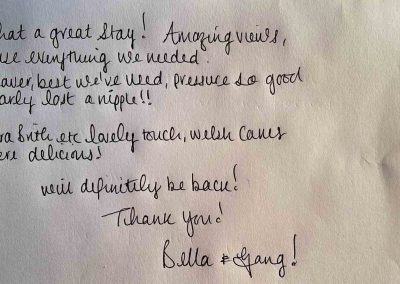 hat a great stay! Amazing views,
use everything we needed.
ower, best we've used, pressure so good
early lost a nipple!!
ra Brith etc lovely touch, welsh cakes
ere delicious!
we'll definitely be back!
Thank you!
Bella & Gang!